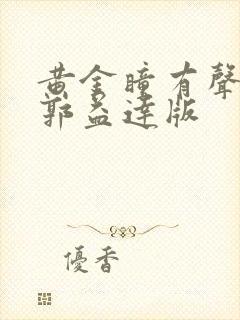 黃金瞳有聲
郭益達版
優香